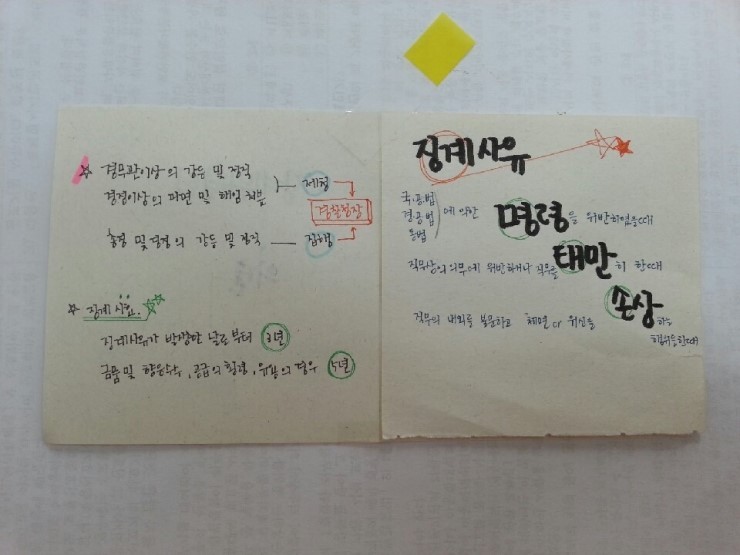 경무관이상의 강등 및 정직
경정이상의 파면 및 해임 처분
제청
경찰청장
총경 및 경정의 강등 및 정직
집행
징계시효.
징계사유가 발생한 날로부터 3년
금품 및 향응수수, 공금의 횡령, 유용의 경우 5년
징계사유
국.공.법
경공법
에 의한 명령을 위반하였을때
직무상의 의무에 위반하거나 직무를 태만히 한때
직무의 내외를 불문하고 체면 or 위신을 손상하는
행위를한때